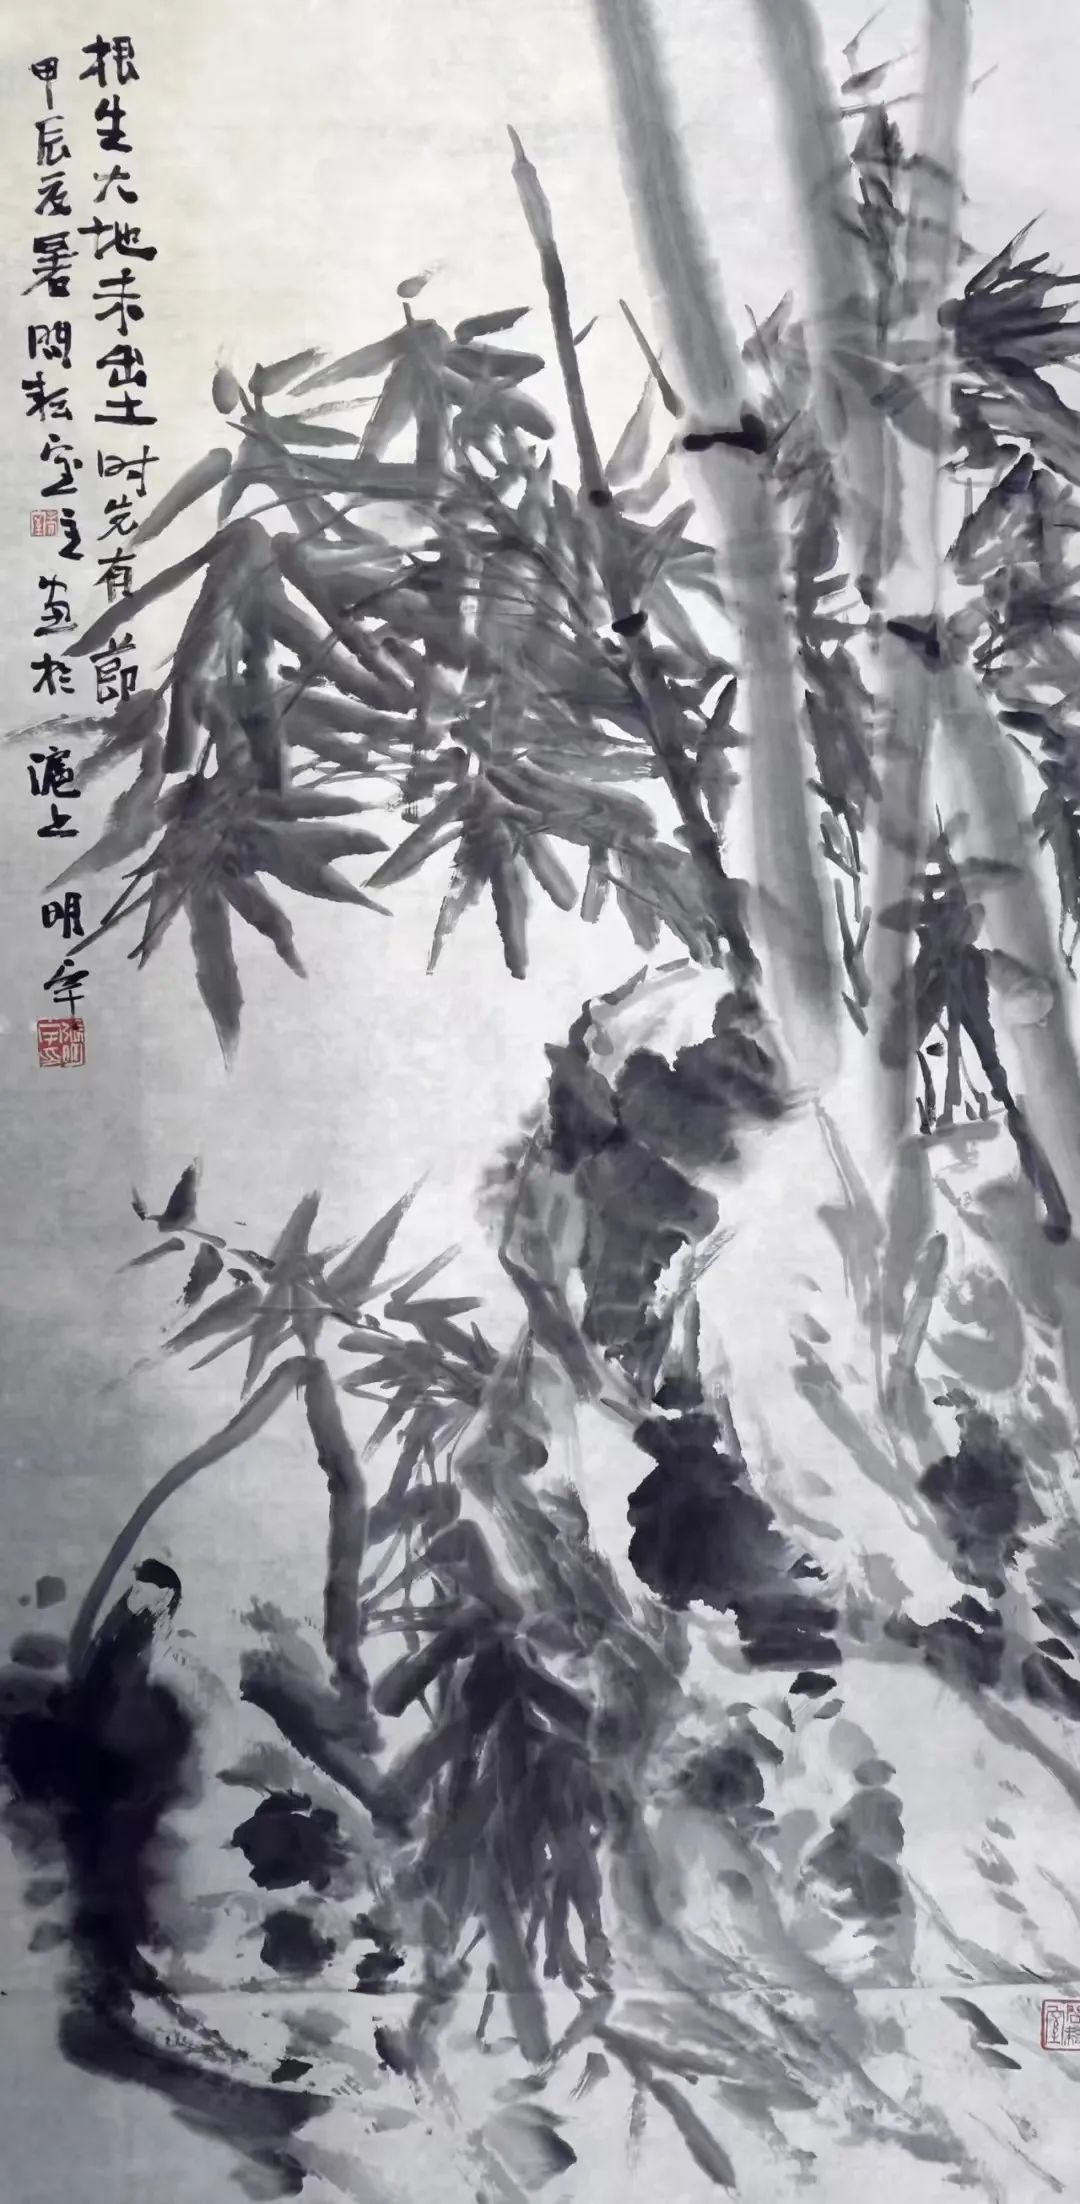 根生大地未出土时先有節
甲辰夏暑問耘室主画於滬上 明宇